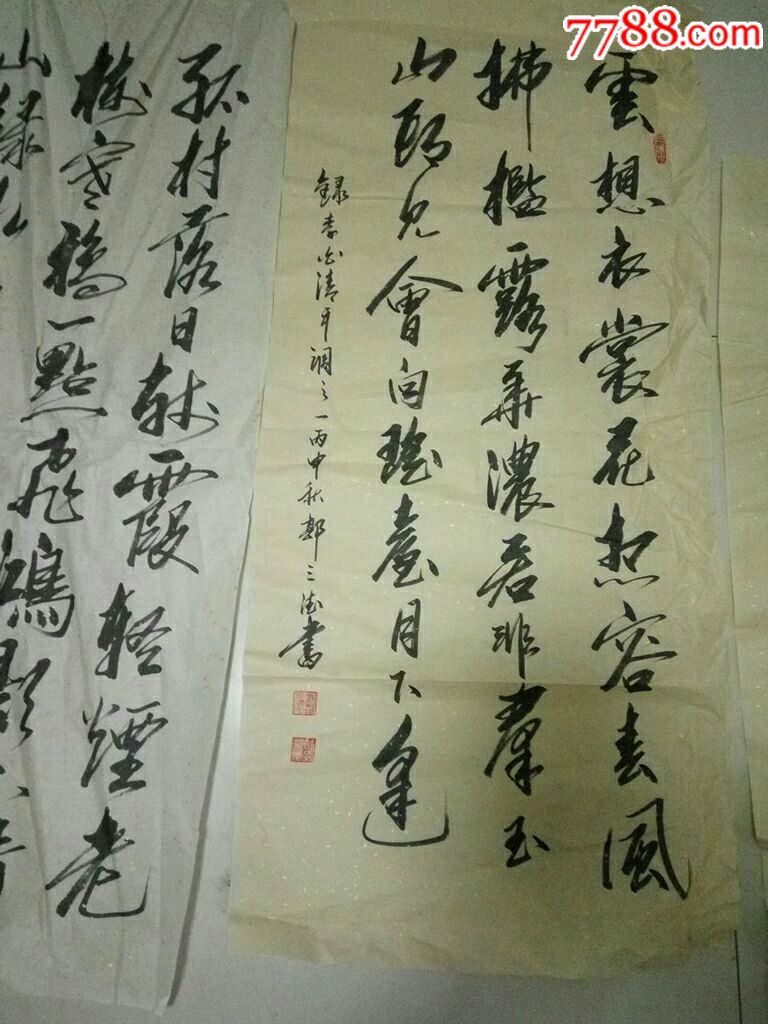 7788.com
雲想衣裳花想容春風
拂檻露華濃若非羣玉
山頭見會向瑤臺月下逢
錄李白清平調之一丙申秋 三 書
孤村落日殘霞輕煙老
樹寒鴉一點飛鴻影下青
山綠水